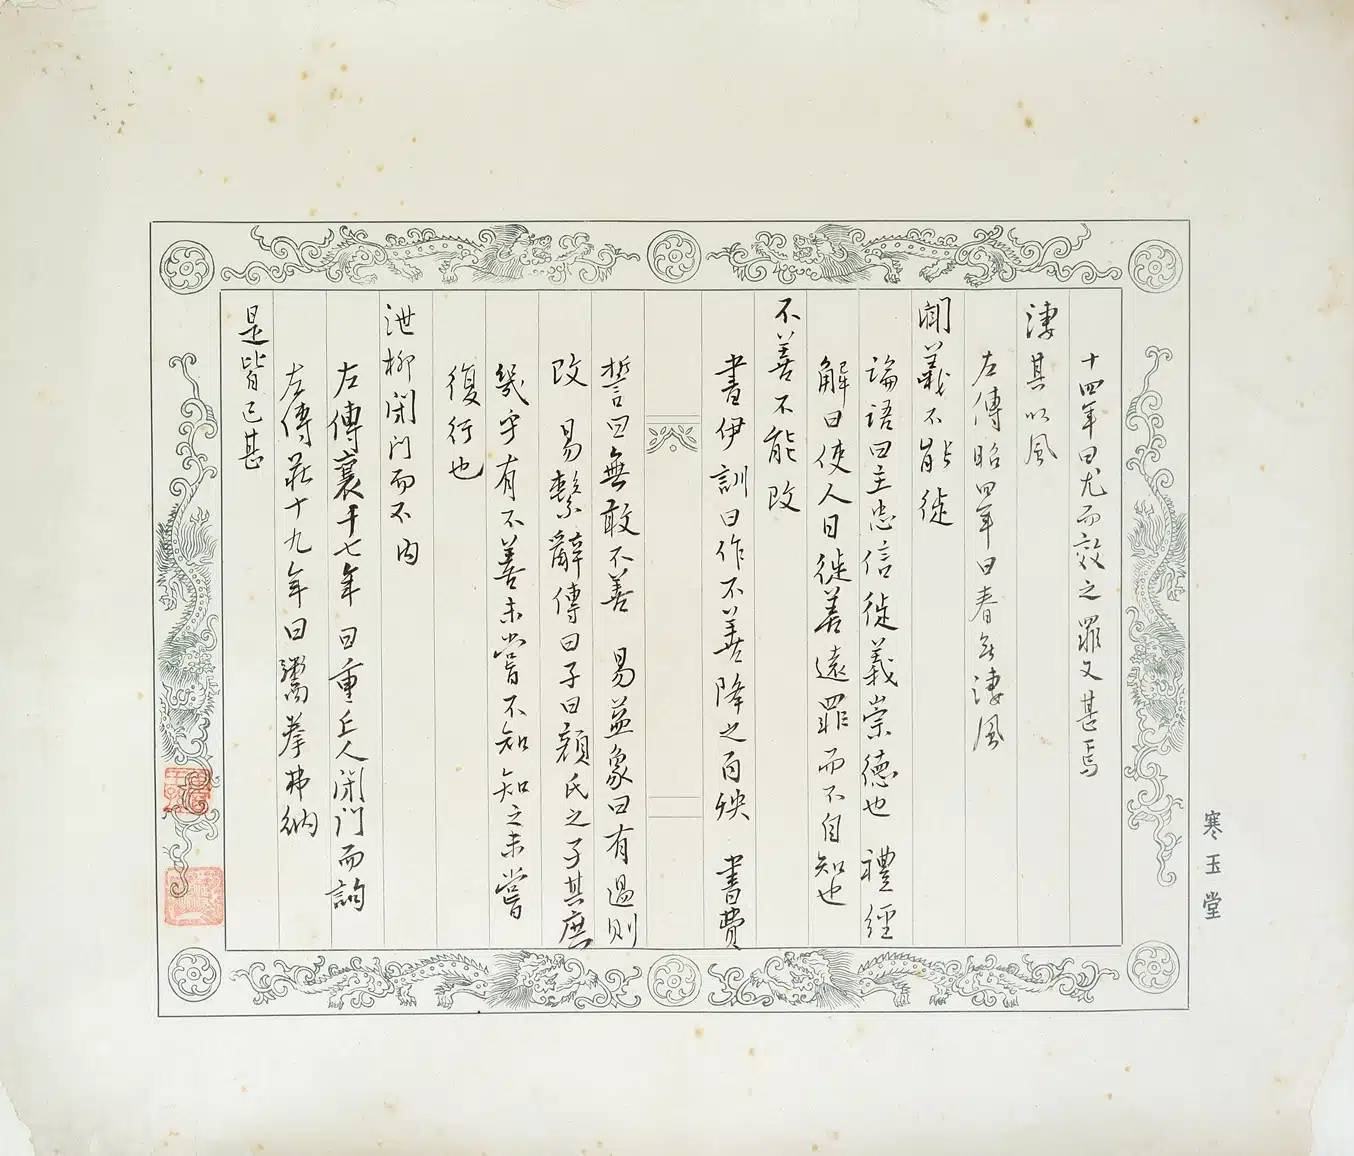 十四年曰尤而效之罪又甚焉
淒其以風
左傳昭四年曰春無淒風
聞義不能徙
論語曰主忠信徙義崇德也 禮經
解曰使人日徙善遠罪而不自知也
不善不能改
書伊訓曰作不善降之百殃 書費
誓曰無敢不善 易益象曰有過則
改 易繫辭傳曰子曰顏氏之子其庶
幾乎有不善未嘗不知知之未嘗
復行也
泄柳閉門而不內
左傳襄十七年曰重丘人閉門而詢
左傳莊十九年曰鬻拳弗納
是皆已甚
寒玉堂